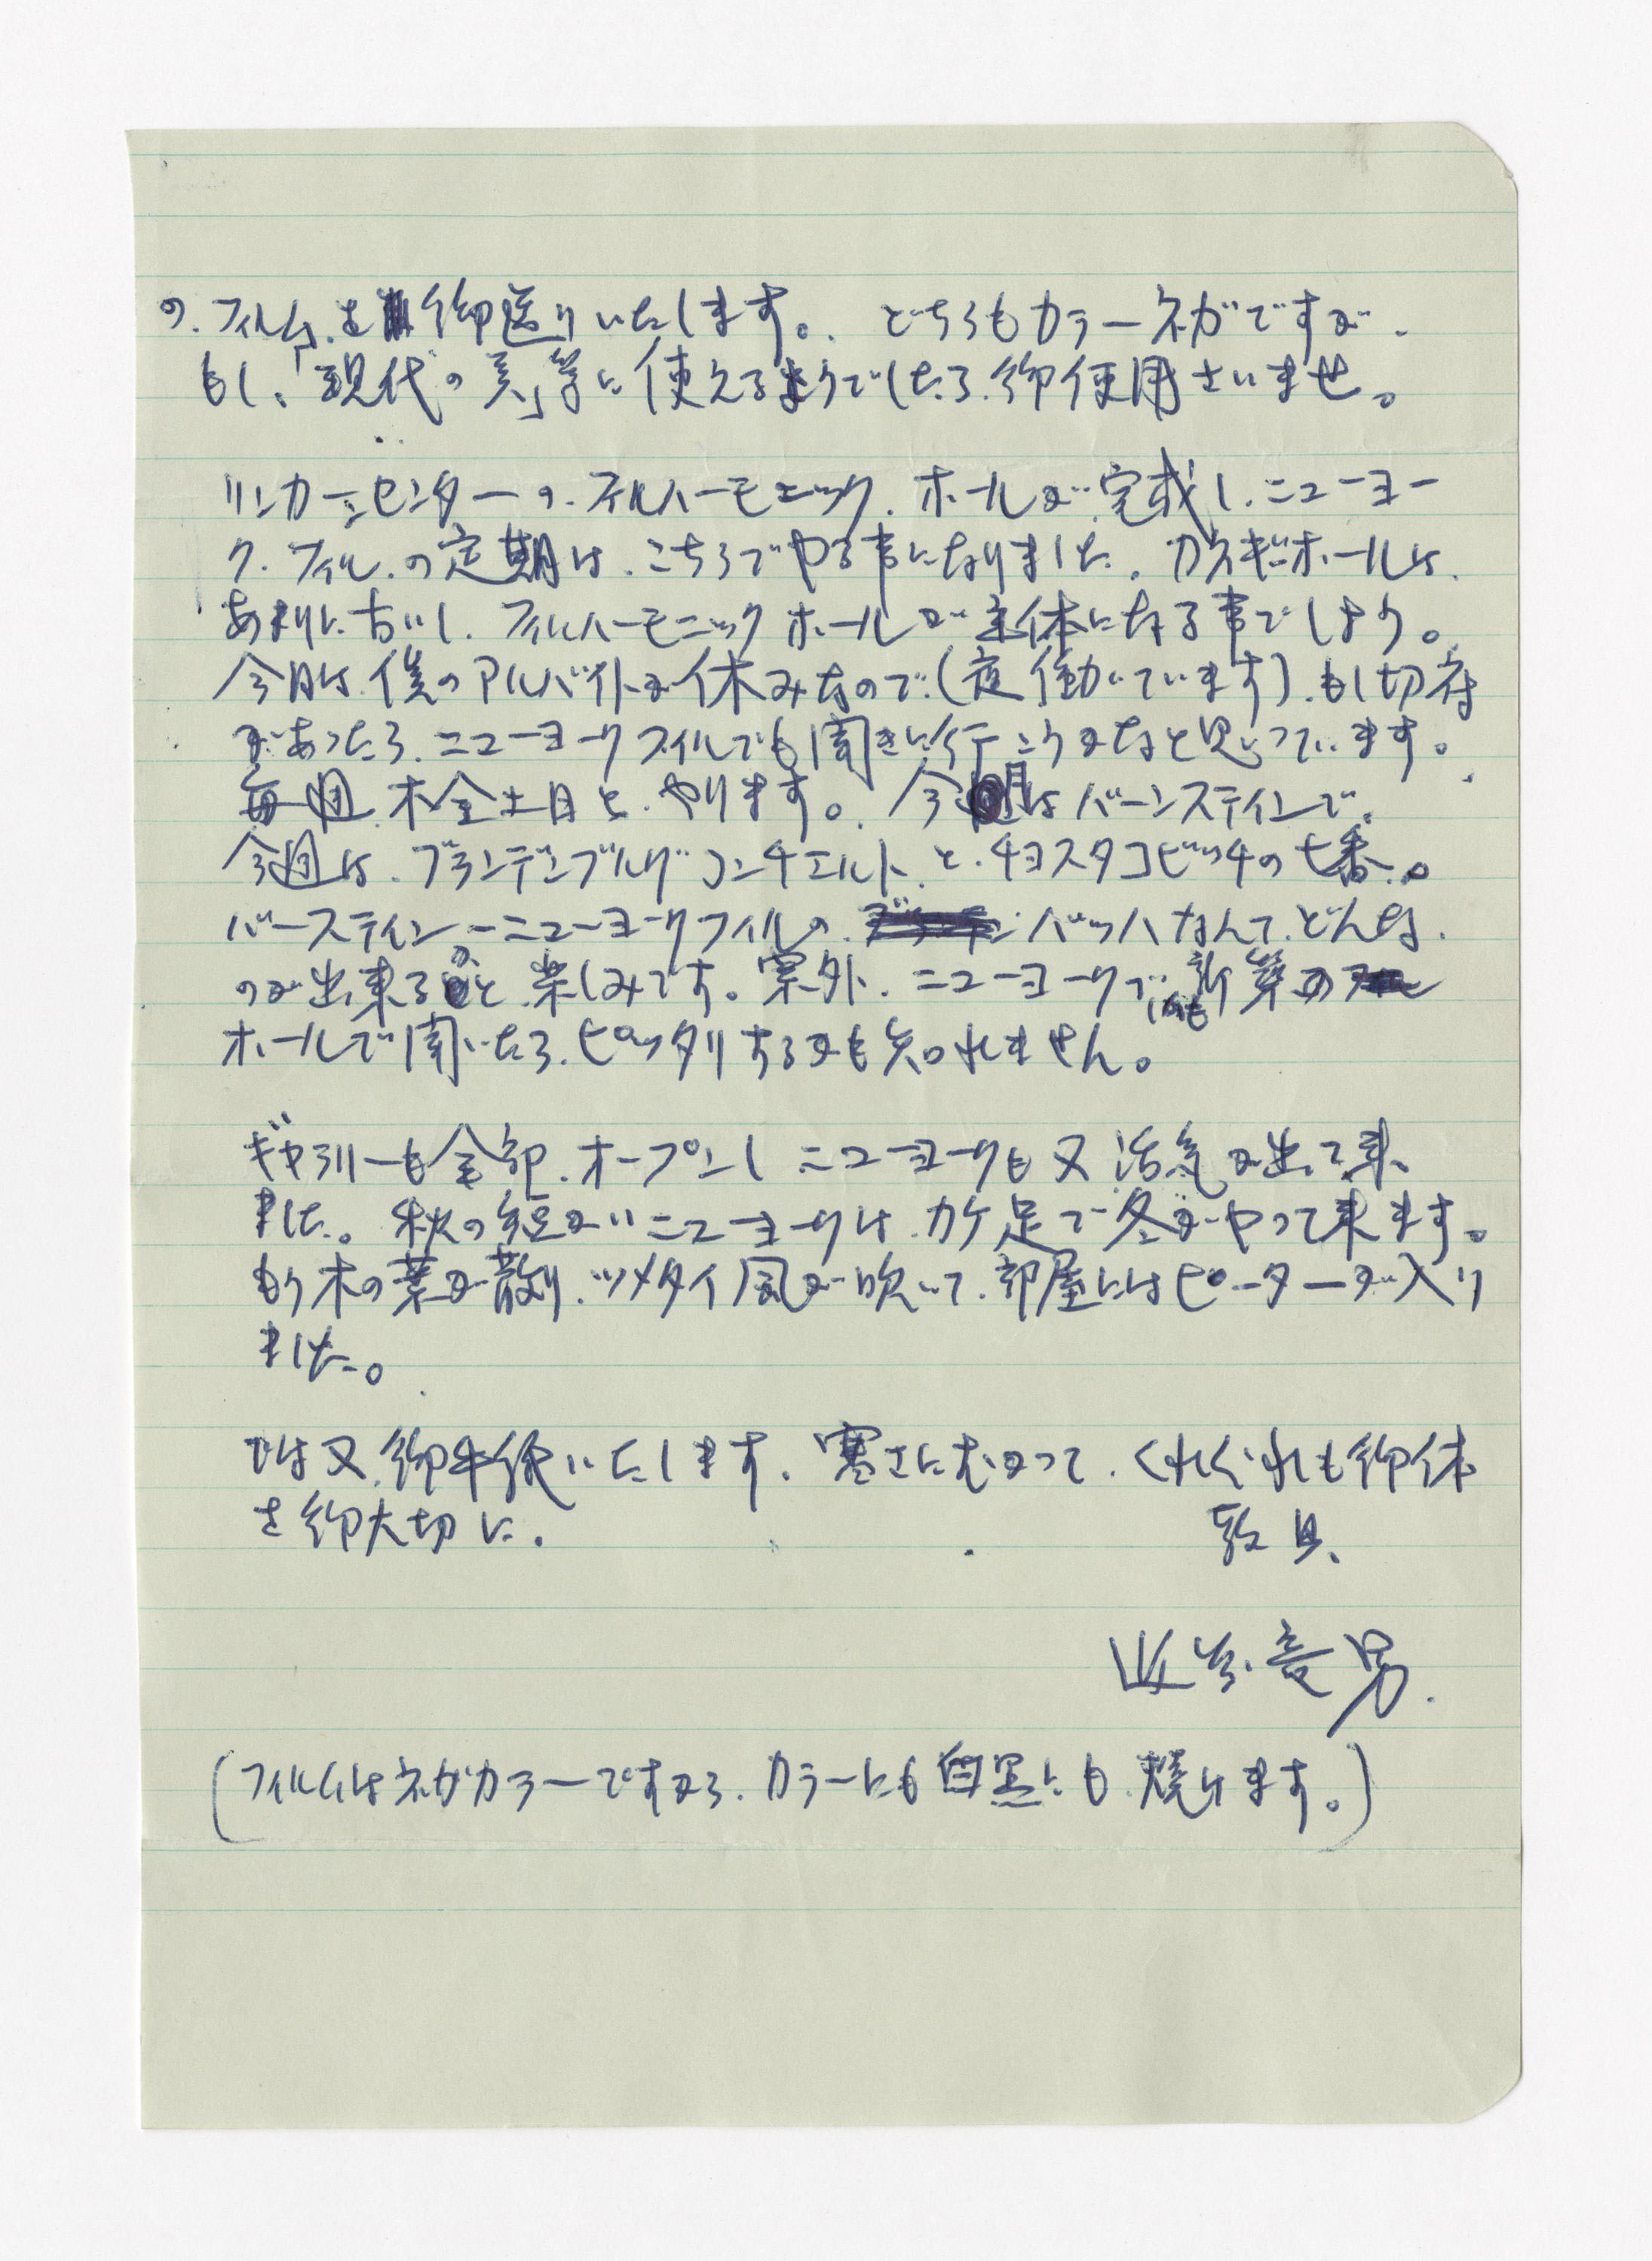 の、フィルムを御送りいたします。どちらもカラーネガですが、
もし、「現代の美」等に使えるようでしたら、御使用下さいませ。
リンカーンセンターの、フィルハーモニック、ホールが、完成し、ニューヨー
ク、フィル、の定期は、こちらでやる事になりました。カネギーホールは、
あまりに古いし、フィルハーモニックホールが主体になる事でしょう。
今月は、僕のアルバイトが休みなので、(夜働いています)、もし切符
があったら、ニューヨークフィルでも聞きに行こうかなと思っています。
毎週、木金土日と、やります。今月はバーンスティンで、
今週は、ブランデンブルグコンチェルト、と、チョスタコビッチの七番。
バースティン−ニューヨークフィルの、バッハなんて、どんな、
のが出来るかと、楽しみです。案外、ニューヨークで、しかも新築の
ホールで聞いたら、ピッタリするかも知れません。
ギャラリーも全部、オープンしニューヨークも又活気が出て来
ました。秋の短かいニューヨークは、カケ足で冬がやって来ます。
もう木の葉が散り、ツメタイ風が吹いて、部屋にはヒーターが入り
ました。
では又、御手紙いたします、寒さにむかって、くれぐれも御体
を御大切に、
敬具、
男
(フィルムはネガカラーですから、カラーにも白黒にも、焼けます。)